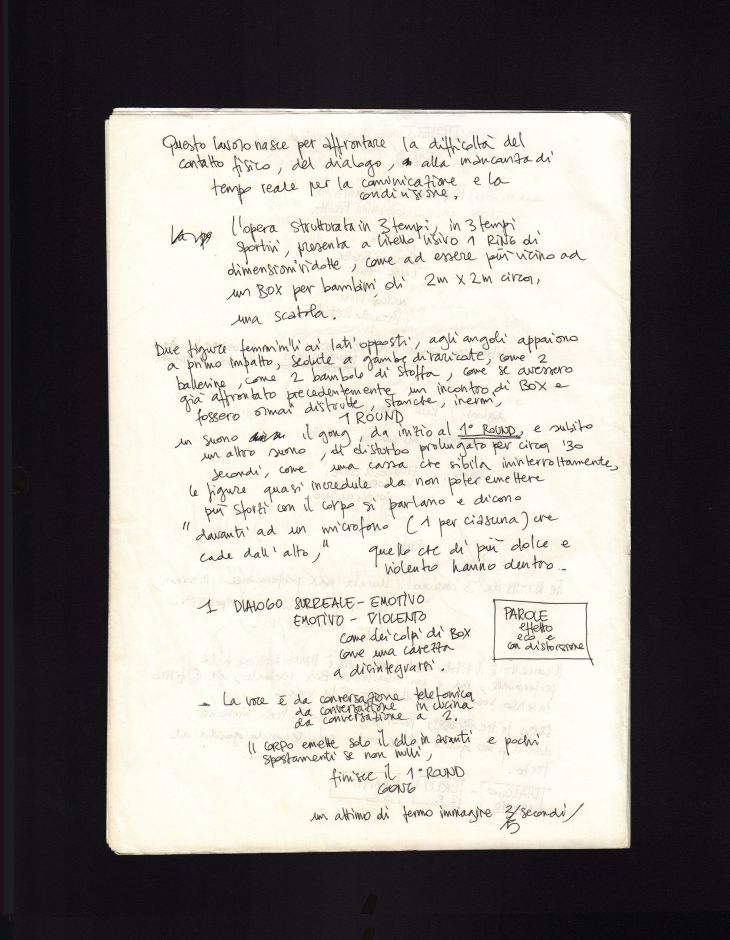 Questo lavoro nasce per affrontare la difficoltà del
contatto fisico, del dialogo, alla mancanza di
tempo reale per la comunicazione e la
condivisione.
l'opera strutturata in 3 tempi, in 3 tempi
sportivi, presenta a livello visivo 1 RING di
dimensioni ridotte, come ad essere più vicino ad
un BOX per bambini, di 2m x 2m circa,
una scatola.
Due figure femminili ai lati opposti, agli angoli appaiono
a primo impatto, sedute a gambe divaricate, come 2
ballerine, come 2 bambole di stoffa, come se avessero
già affrontato precedentemente un incontro di BOX e
fossero ormai distrutte, stanche, inermi,
1 ROUND
un suono il gong, da inizio al 1° ROUND, e subito
un altro suono, di disturbo prolungato per circa '30
secondi, come una cassa che sibila ininterrottamente,
le figure quasi incredule da non poter emettere
più sforzi con il corpo si parlano e dicono
"davanti ad un microfono (1 per ciascuna) che
cade dall'alto," quello che di più dolce e
violento hanno dentro -
1 DIALOGO SURREALE - EMOTIVO
EMOTIVO - VIOLENTO
come dei colpi di BOX
come una carezza
a disintegrarsi.
PAROLE
effetto
eco e
con distorsione
- La voce è da conversazione telefonica
da conversazione in cucina
da conversazione a 2.
Il CORPO emette solo il collo in avanti e pochi
spostamenti se non nulli,
finisce il 1° ROUND
GONG
un attimo di fermo immagine 3/secondi/
5